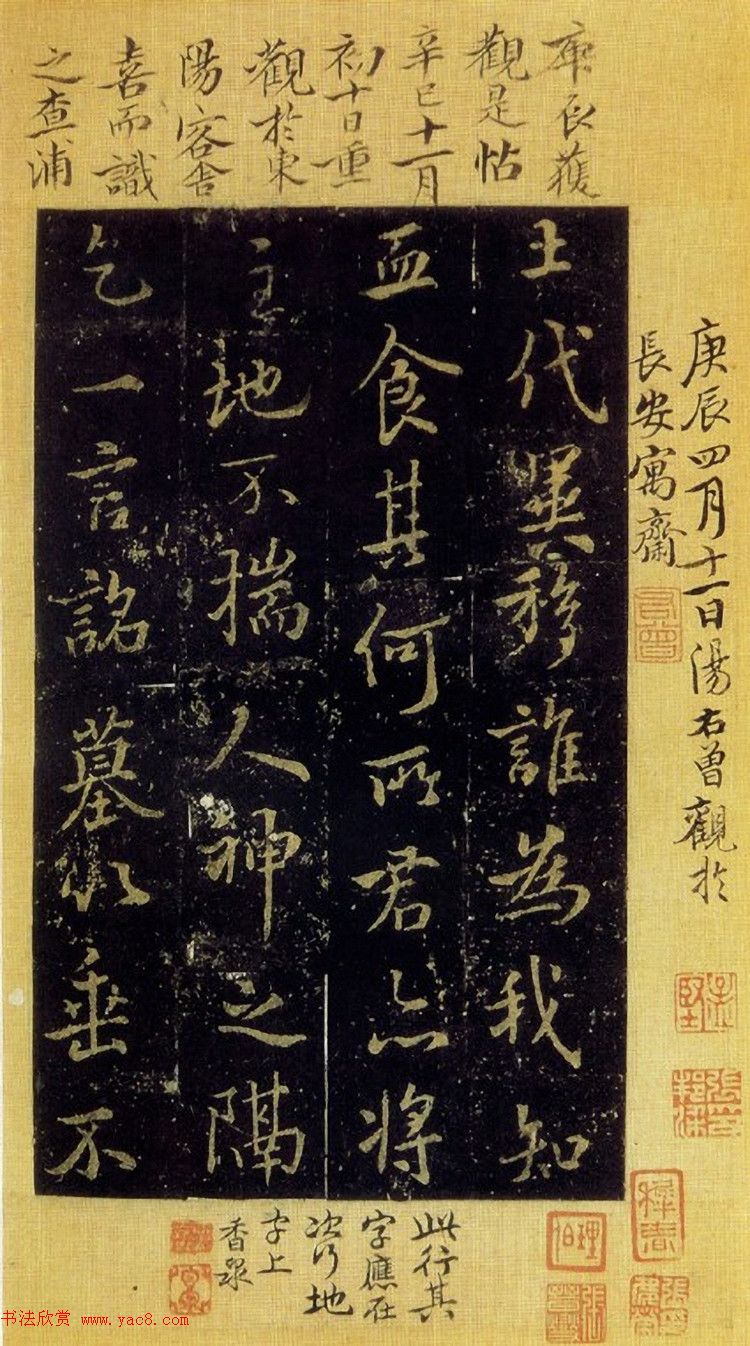 庚辰獲
觀是帖
辛巳十一月
初十日重
觀於東
陽客舍
喜而識
之查浦
庚辰四月十一日湯右曾觀於
長安寓齋
土代異移誰為我知
血食其何所君將
主地不揣人神之隔
乞一言詺墓以垂不
此行其
字應在
次行地
字上
香泉
右曾
理伯
书法欣赏 www.yac8.com